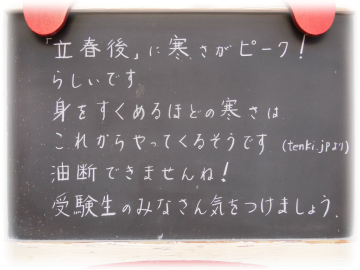 「立春後」に寒さがピーク！
らしいです
身をすくめるほどの寒さは
これからやってくるそうです (tenki.jpより)
油断できませんね！
受験生のみなさん気をつけましょう。